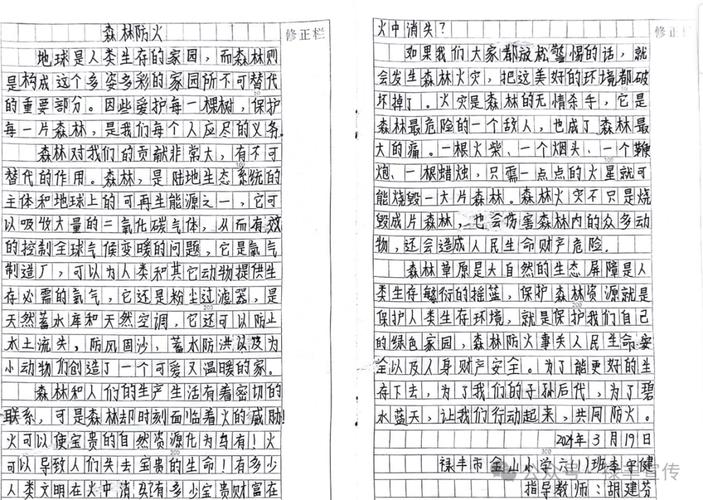 森林防火
修正栏
地球是人类生存的家园，而森林则
是构成这个多姿多彩的家园所不可替代
的重要部分。因些爱护每一棵树，保护
每一片森林，是我们每个人应尽的义务。
森林对我们的贡献非常大，有不可
替代的作用。森林，是陆地生态系统的
主体和地球上的可再生能源之一，它可
以吸收大量的二氧化碳气体，从而有效
的控制全球气候变暖的问题，它是氧气
制造厂，可以为人类和其它动物提供生
存必需的氧气，它还是粉尘过滤器，是
天然蓄水库和天然空调，它还可以防止
水土流失，防风固沙，蓄水防洪以及为
小动物们创造了一个可爱又温暖的家。
森林和人们的生产生活有着密切的
联系，可是森林却时刻面临着火的威胁！
火可以使宝贵的自然资源化为乌有！火
可以导致人们失去宝贵的生命！有多少
人类文明在火中消亡？有多少宝贵财富在
火中消失？
修正栏
如果我们大家都放松警惕的话，就
会发生森林火灾，把这美好的环境都破
坏掉了。火灾是森林的无情杀手，它是
森林最危险的一个敌人，也成了森林最
大的痛。一根火柴、一个烟头、一个鞭
炮、一根蜡烛，只需一点点的火星就可
能烧毁一大片森林。森林火灾不只是烧
毁成片森林，也会伤害森林内的众多动
物，还会造成人民生命财产危险。
森林草原是大自然的生态屏障是人
类生存繁衍的摇篮，保护森林资源就是
保护人类生存环境，就是保护我们自己
的绿色家园，森林防火事关人民生命安
全以及人身财产安全。为了能更好的生
存下去，为了我们的子孙后代，为了碧
水蓝天，让我们行动起来，共同防火。
2024年3月19日
禄丰市金山小学六(1)班李
公众号·禄丰宣传
指导教师：胡建芬